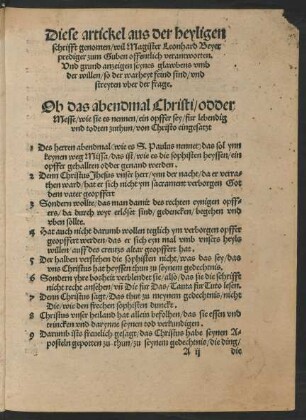 Diese artickel aus der heyligen
schrifft genomen/ wil Magister Leonhard Beyer
prediger zum Guben offentlich verantworten.
Und grund anzeigen seynes glawbens umb
der willen/ so der warheyt feind sind/ und
streyten uber der frage.
Ob das abendmal Christi/ odder
Messe/ wie sie es nennen/ ein opffer sey/ fur lebendig
und todten zuthun/ von Christo eingesatzt
1 Des herren abendmal/ wie es S. Paulus nennet/ das sol ynn
keynen weg Missa/ das ist/ wie es die sophisten heyssen/ ein
opffer gehallten odder genand werden.
2 Denn Christus Jhesus unser herr/ ynn der nacht/ da er verra-
then ward/ hat er sich nicht ym sacrament verborgen Got
dem vater geopffert
3 Sondern wollte/ das man damit des rechten eynigen opff-
ers/ da durch wyr erlöset sind/ gedencken/ begehen und
uben söllte.
4 Hat auch nicht darumb wollen teglich ym verborgen opffer
geopffert werden/ das er sich eyn mal umb unsers heyls
willen/ auff des creutzs altar geopffert hat.
5 Der halben verstehen die Sophisten nicht/ was das sey/ das
uns Christus hat heyssen thun zu seynem gedechtnis.
6 Sondern yhre bosheit verblendet sie/ also/ das sie die schrifft
nicht rechte ansehen/ un̄ Die fur Das/ Tauta fur Tuto lesen.
7 Denn Christus sagt/ Das thut zu meynem gedechtnis/ nicht
Die/ wie den frechen sophisten duncke.
8 Christus unser heiland hat allein befolhen/ das sie essen und
trincken und darynne seynen tod verkundigen.
9 Darumb ists frevelich gesagt/ das Christus habe seynen A-
posteln gepotten zu thun/ zu seynem gedechtnis/ die ding/
A ij die